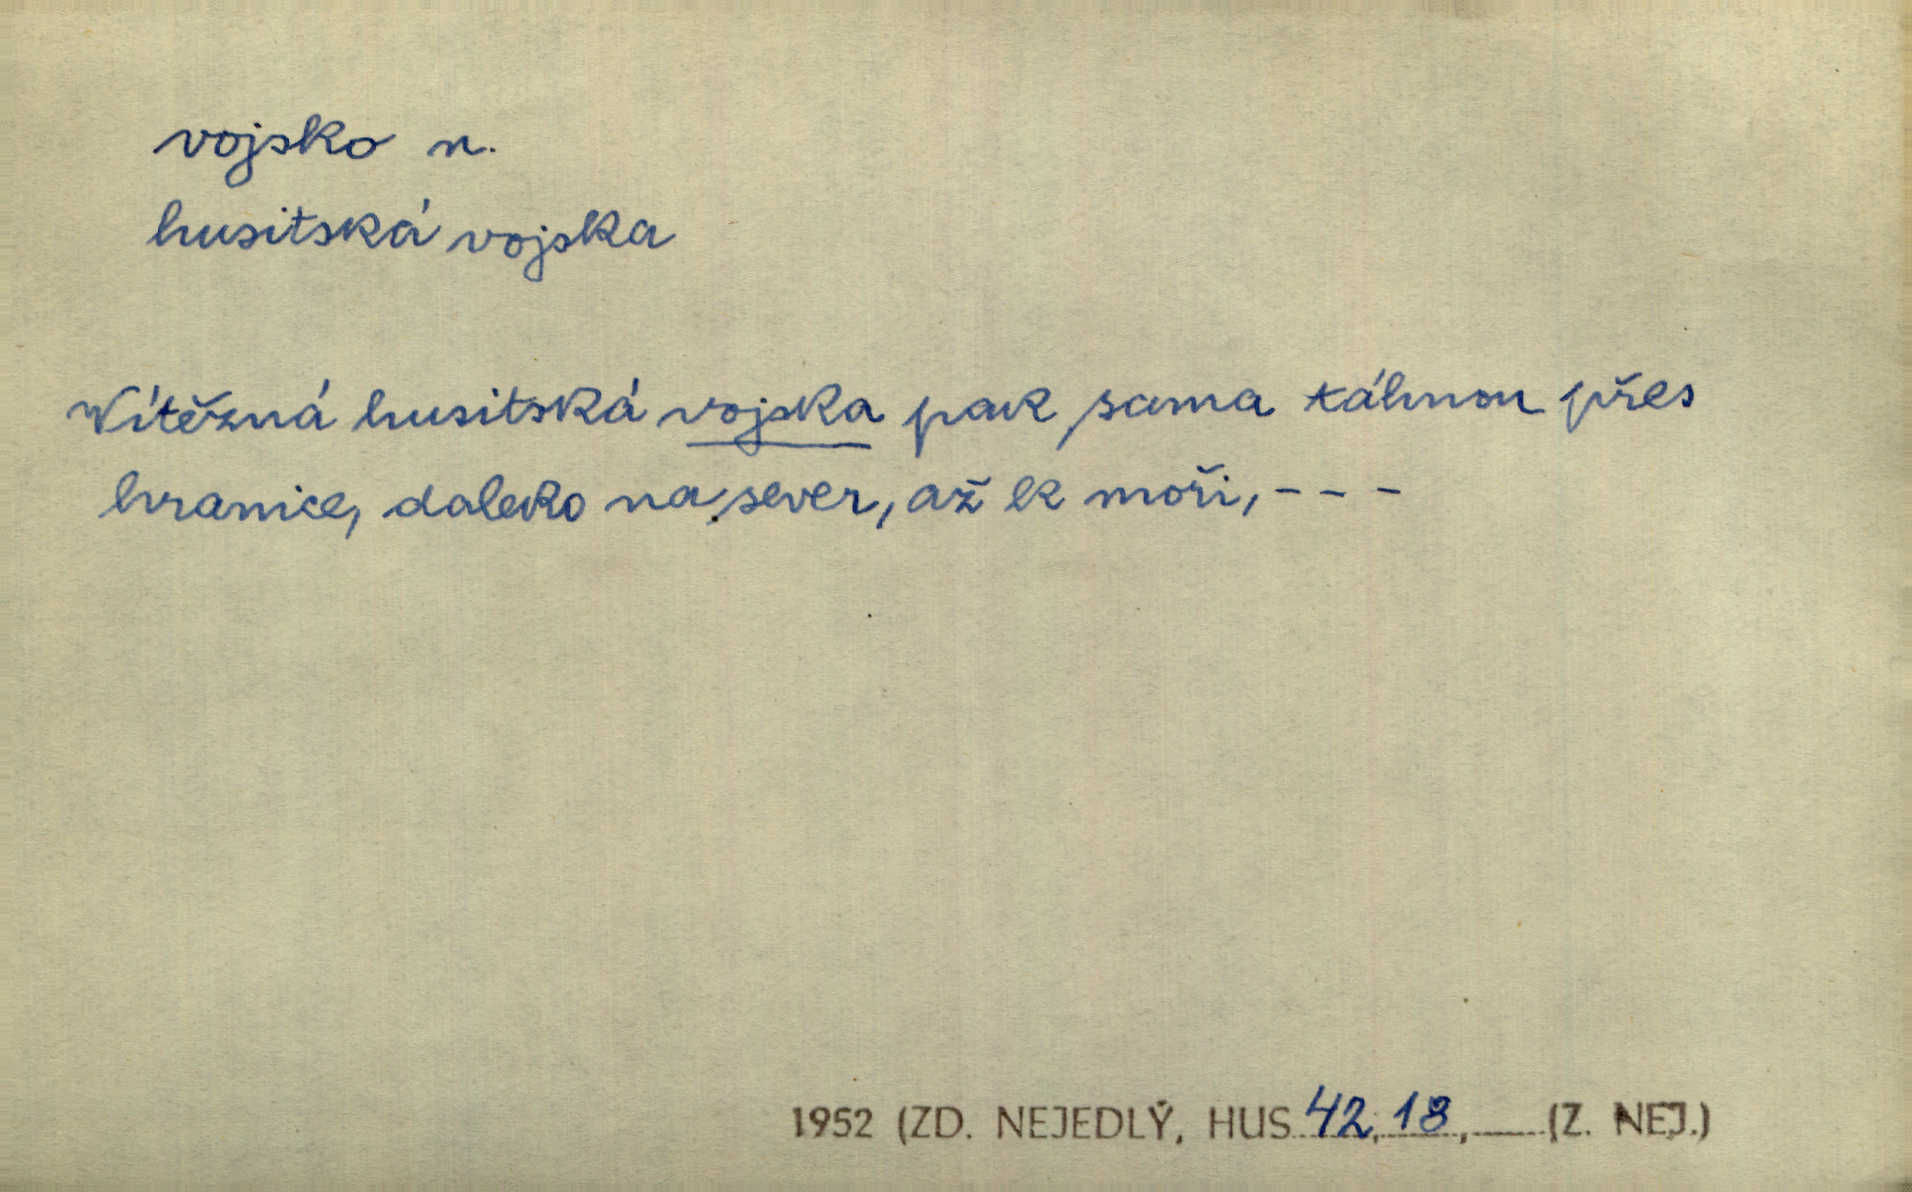 vojsko n.
husitská vojska
Vítězná husitská vojska pak sama táhnou přes
hranice, daleko na sever, až k moři, - - -
1952 (ZD. NEJEDLÝ, HUS 42, 18, (Z. NEJ.)